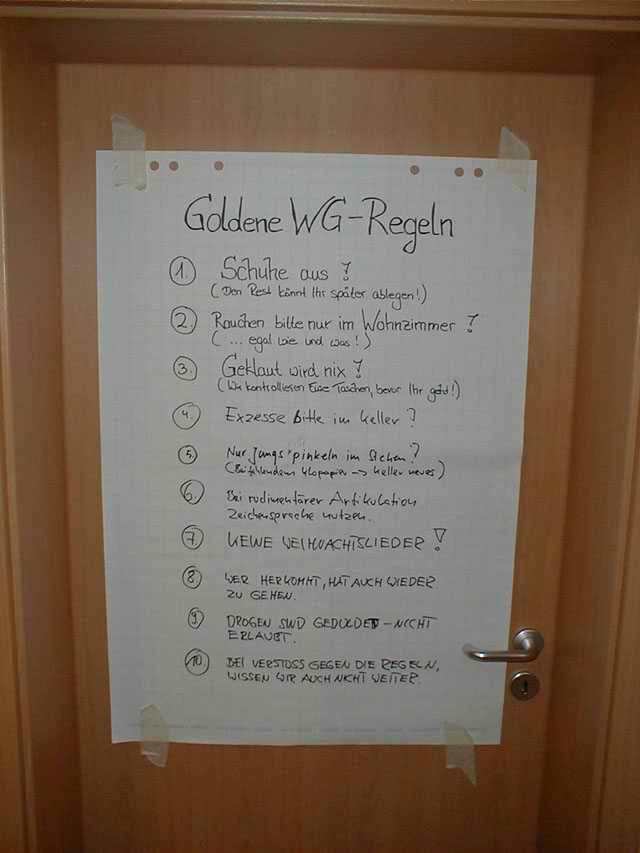 Goldene WG-Regeln
1. Schuhe aus!
(Den Rest könnt Ihr später ablegen!)
2. Rauchen bitte nur im Wohnzimmer!
(... egal wie und was!)
3. Geklaut wird nix!
(Wir kontrollieren Eure Taschen, bevor Ihr geht!)
4. Exzesse bitte im Keller?
5. Nur Jungs pinkeln im Stehen?
(Bei fehlendem Klopapier -> Keller neues)
6. Bei rudimentärer Artikulation
Zeichensprache nutzen.
7. KEINE WEIHNACHTSLIEDER!
8. WER HERKOMMT, HAT AUCH WIEDER
ZU GEHEN.
9. DROGEN SIND GEDULDET - NICHT
ERLAUBT.
10. BEI VERSTOSS GEGEN DIE REGELN,
WISSEN WIR AUCH NICHT WEITER.